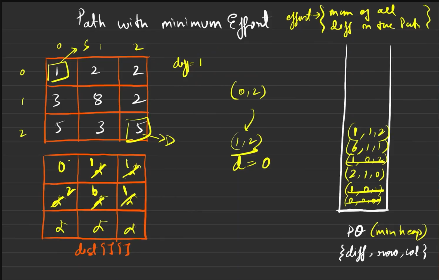 Path with minimum Effort
effort → { max of all
diff in the Path }
0 → S 1 2
diff = 1
0 1 2 2
1 3 8 2
2 5 3 5 → D
(0, 2)
(1, 2)
d = 0
0 1 1
2 6 1
α α α
dist [ ] [ ]
(1, 1, 2)
(6, 1, 1)
(1, 0, 2)
(2, 1, 0)
(1, 0, 1)
(0, 0, 0)
PQ (min heap)
{ diff, row, col }